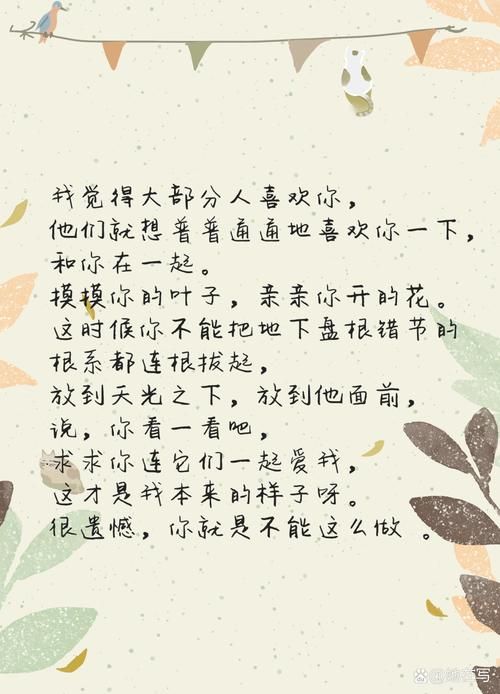 我觉得大部分人喜欢你，
他们就想普普通通地喜欢你一下，
和你在一起。
摸摸你的叶子，亲亲你开的花。
这时候你不能把地下盘根错节的
根系都连根拔起，
放到天光之下，放到他面前，
说，你看一看吧，
求求你连它们一起爱我，
这才是我本来的样子呀。
很遗憾，你就是不能这么做 。
@她在写